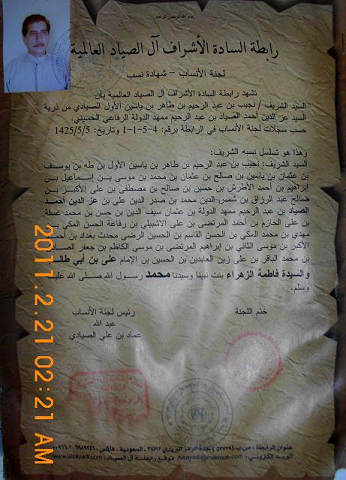 رابطة السادة الأشراف آل الصياد العالمية
لجنة الأنساب - شهادة نسب
تشهد رابطة السادة الأشراف آل الصياد العالمية بأن
السيد الشريف / نجيب بن عبد الرحيم بن طاهر بن ياسين الأول الصيادي من ذرية
السيد عز الدين أحمد الصياد بن عبد الرحيم ممهد الدولة الرفاعي الحسيني.
حسب سجلات لجنة الأنساب في الرابطة برقم: 4-5-1-1 وتاريخ: 1425/5/5
وهذا هو تسلسل نسبه الشريف:
السيد الشريف: نجيب بن عبد الرحيم بن طاهر بن ياسين الأول بن طه بن يوسف
بن عثمان بن ياسين بن صالح بن عثمان بن محمد بن موسى بن إسماعيل بن
إبراهيم بن أحمد الأطرش بن حسين بن صالح بن مصطفى بن علي الأكبر بن
صالح عبد الرزاق بن شمس الدين محمد بن صدر الدين علي بن عز الدين أحمد
الصياد بن عبد الرحيم ممهد الدولة بن عثمان سيف الدين بن حسن بن محمد عسلة
بن علي الحازم بن أحمد المرتضى بن علي الاشبيلي بن رفاعة الحسن المكي بن
مهدي بن محمد المكي بن الحسن القاسم بن الحسين الرضي محدث بغداد بن أحمد
الأكبر بن موسى الثاني بن إبراهيم المرتضى بن موسى الكاظم بن جعفر الصادق
بن محمد الباقر بن علي زين العابدين بن الحسين بن الإمام علي بن أبي طالب
والسيدة فاطمة الزهراء بنت نبينا وسيدنا محمد رسول الله صلى الله عليه
وسلم.
ختم اللجنة
رئيس لجنة الأنساب
عبد الله
عماد بن علي الصيادي
عنوان الرابطة: ص.ب جدة الرمز البريدي السعودية
البريد الكتروني: موقع رابطة آل الصياد:
2011.2.21 02:21 AM